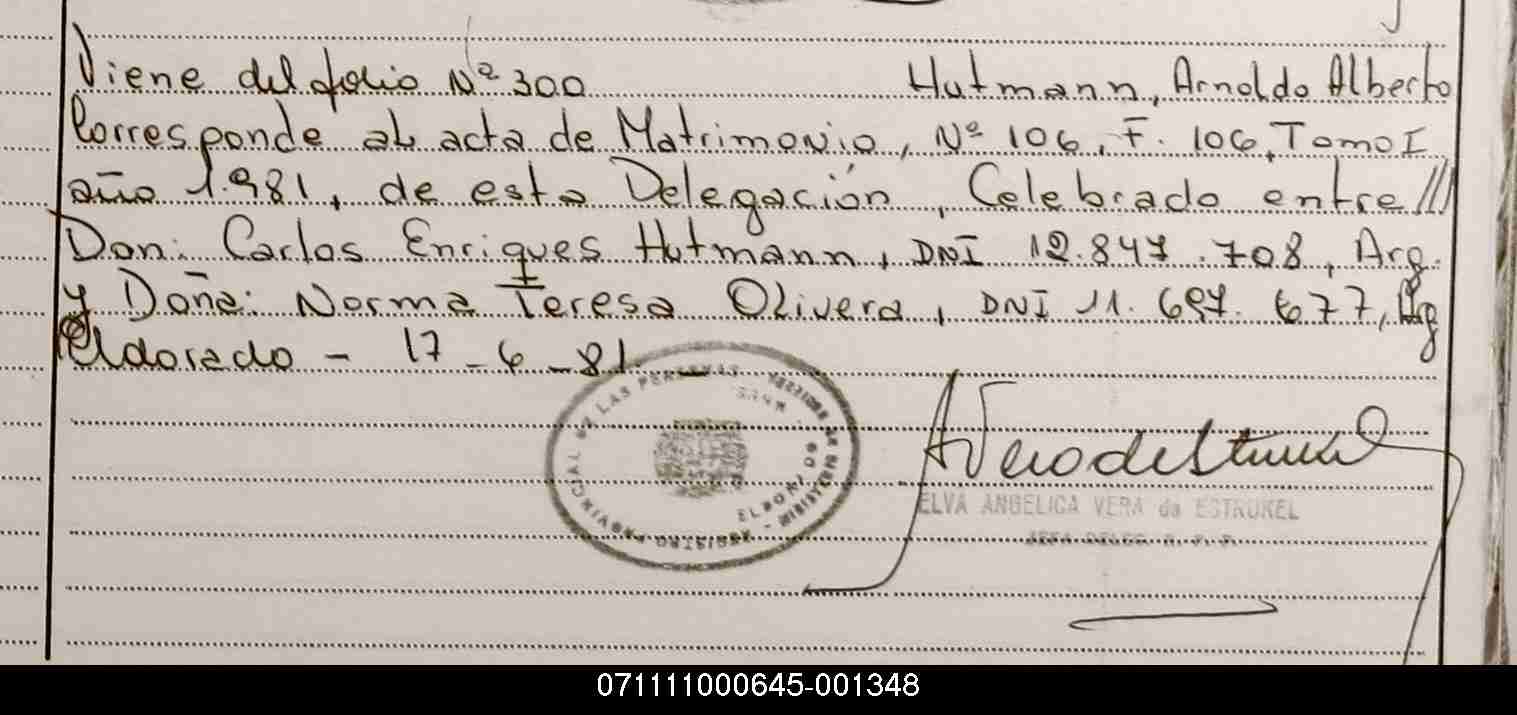 Viene del folio Nº 300 Hutmann, Arnoldo Alberto
Corresponde al acta de Matrimonio, Nº 106, F. 106, Tomo I
año 1.981, de esta Delegación, Celebrado entre ///
Don: Carlos Enriques Hutmann, DNI 12.847.708, Arg.
y Doña: Norma Teresa Olivera, DNI 11.697.677, Arg
Eldorado - 17-6-81.
REGISTRO PROVINCIAL DE LAS PERSONAS
ELDORADO
ELVA ANGELICA VERA de ESTRUKEL
JEFA DELEG. R. P. P.
071111000645-001348